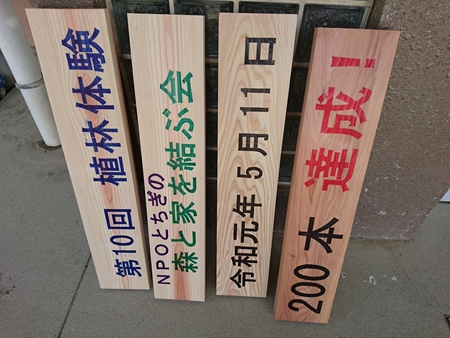 第10回 植林体験
NPOとちぎの
森と家を結ぶ会
令和元年 5月11日
200本 達成！